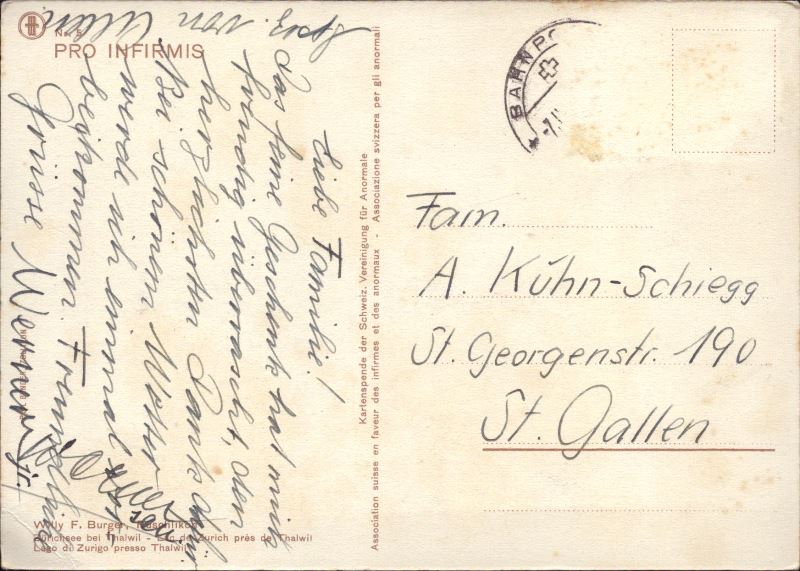 No. 5
PRO INFIRMIS
Liebe Familie!
Das feine Geschenk hat mich
freudig überrascht, den
herzlichsten Dank dafür
Bei schönem Wetter
werde ich einmal
beikommen. Freundliche
Grüsse Werner jr.
von
Willy F. Burger, Rüschlikon
Zürichsee bei Thalwil - Lac de Zurich près de Thalwil
Lago di Zurigo presso Thalwil
Kartenspende der Schweiz. Vereinigung für Anormale
Association suisse en faveur des infirmes et des anormaux - Associazione svizzera per gli anormali
BAHNPO
Fam.
A. Kühn-Schiegg
St. Georgenstr. 190
St. Gallen